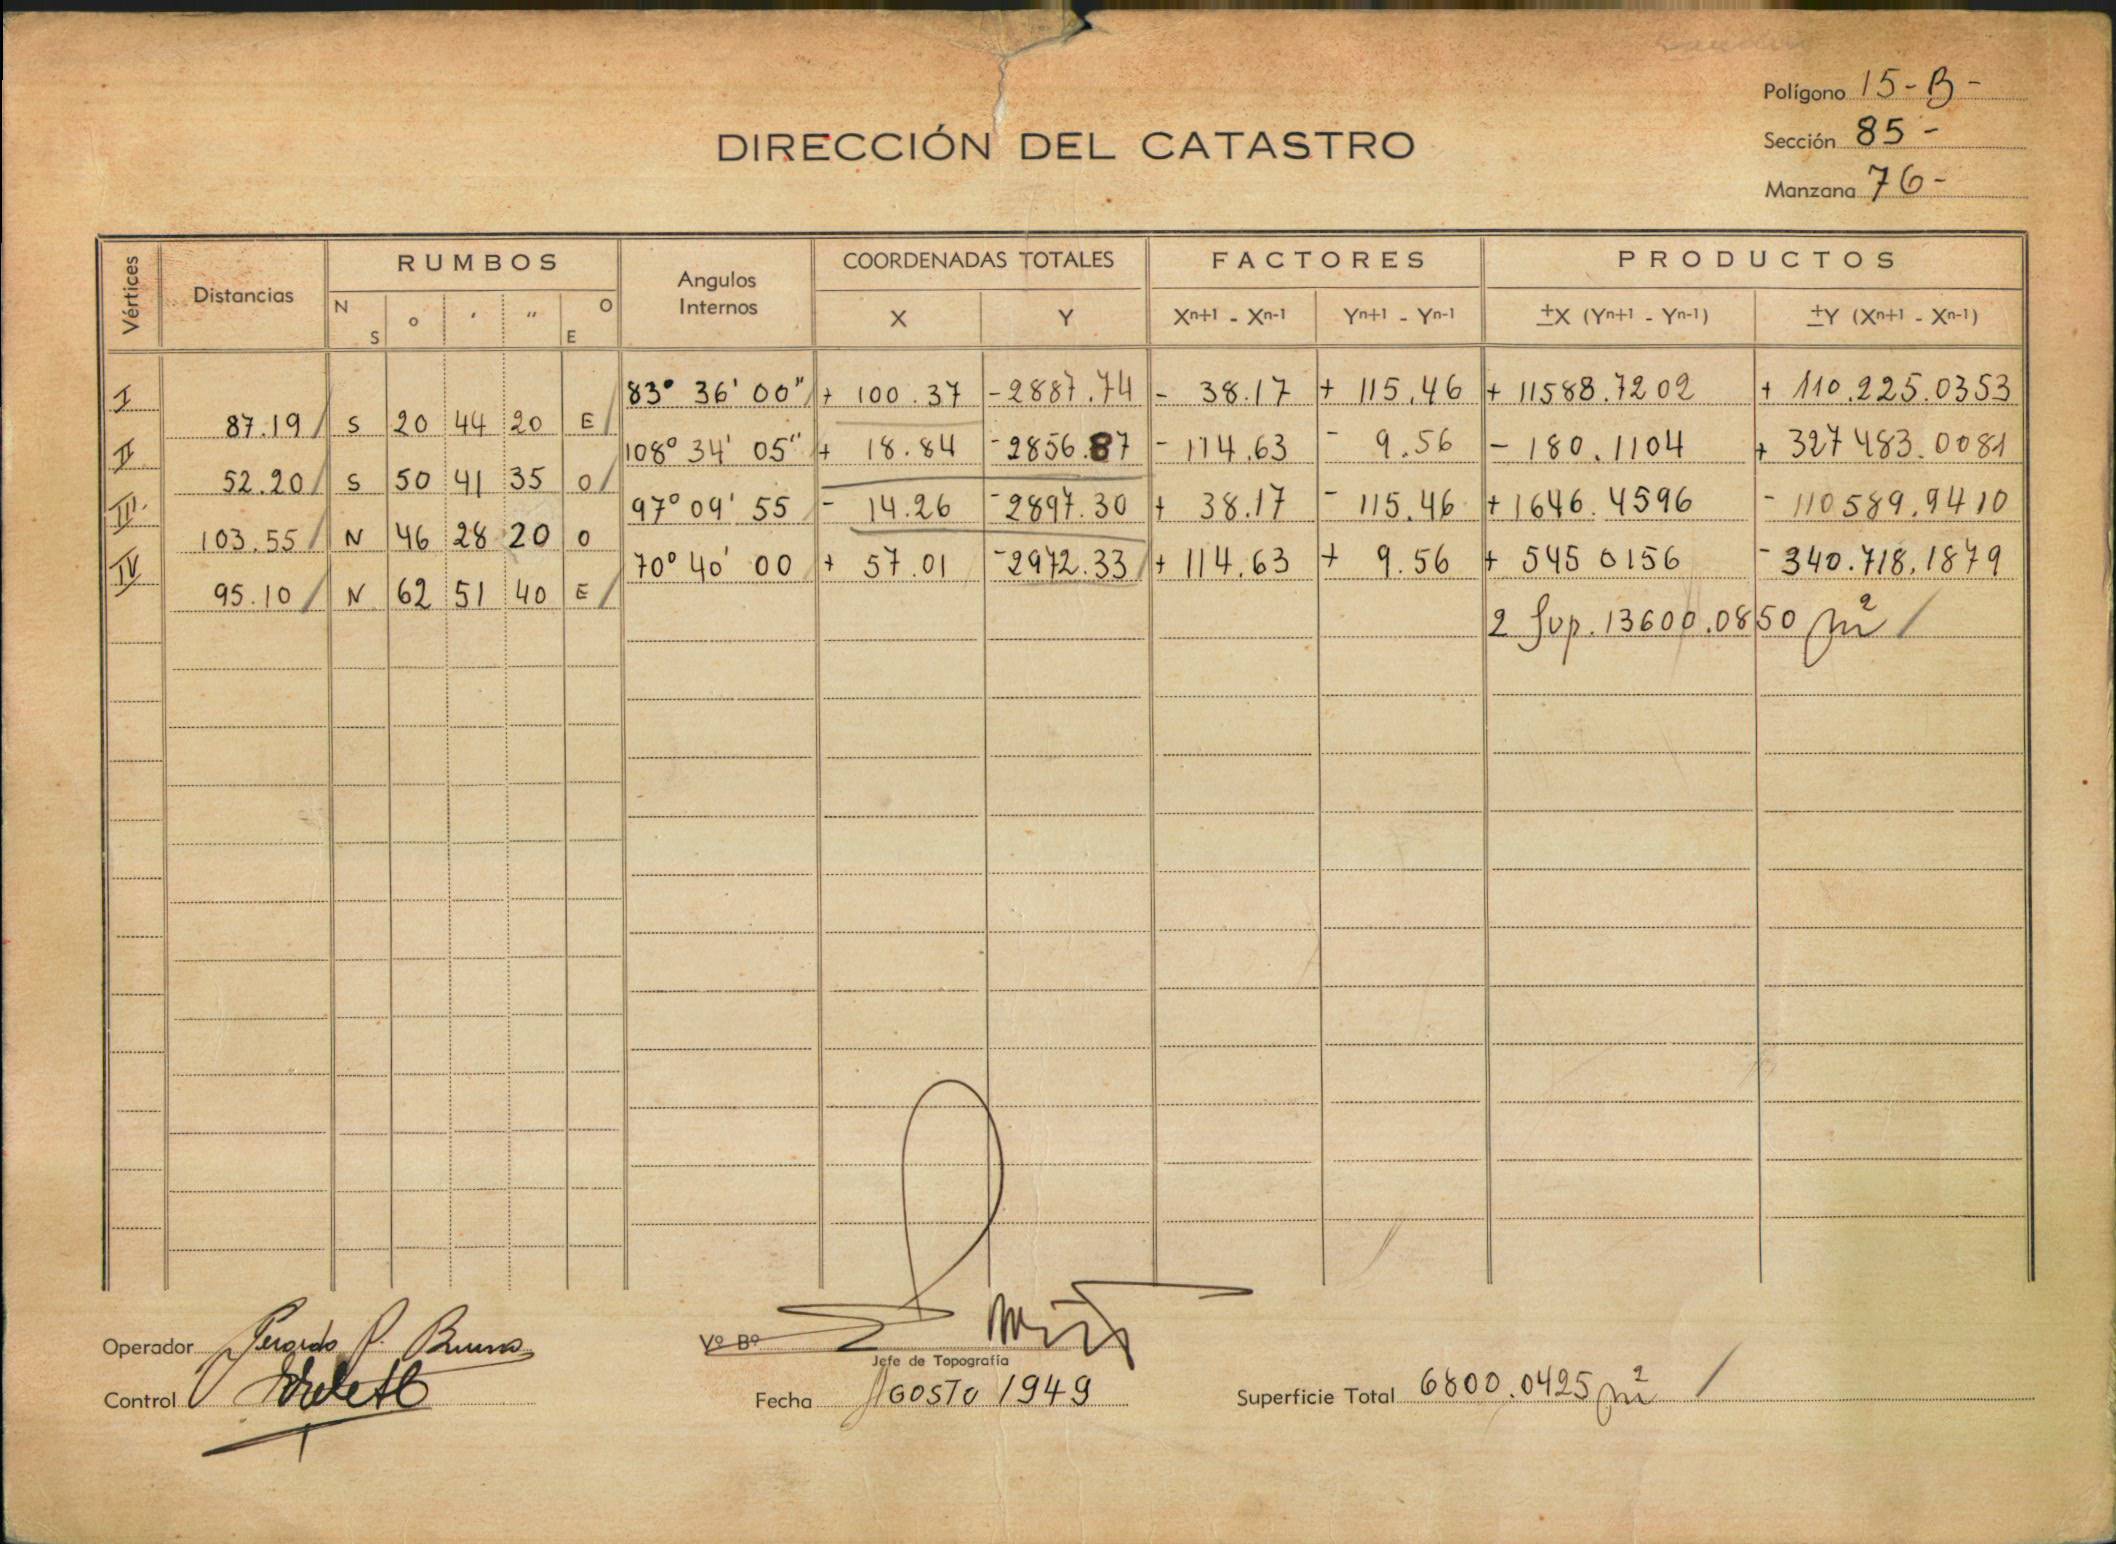 Polígono 15-B-
DIRECCIÓN DEL CATASTRO
Sección 85-
Manzana 76-
Vértices Distancias RUMBOS Angulos Internos COORDENADAS TOTALES FACTORES PRODUCTOS
N S o ' '' O E X Y Xn+1 - Xn-1 Yn+1 - Yn-1 ±X (Yn+1 - Yn-1) ±Y (Xn+1 - Xn-1)
I 83° 36' 00" + 100.37 -2887.74 - 38.17 + 115.46 + 11588.7202 + 110.225.0353
87.19 S 20 44 20 E
II 108° 34' 05" + 18.84 -2856.87 - 114.63 - 9.56 - 180.1104 + 327483.0081
52.20 S 50 41 35 O
III 97° 09' 55 - 14.26 -2897.30 + 38.17 - 115.46 + 1646.4596 - 110589.9410
103.55 N 46 28 20 O
IV 70° 40' 00 + 57.01 -2972.33 + 114.63 + 9.56 + 545 0156 - 340.718.1879
95.10 N 62 51 40 E
2 Sup. 13600.0850 m²
Operador Gerardo P. Bruno
Vº Bº
Jefe de Topografía
Control
Fecha AGOSTO 1949
Superficie Total 6800.0425 m²